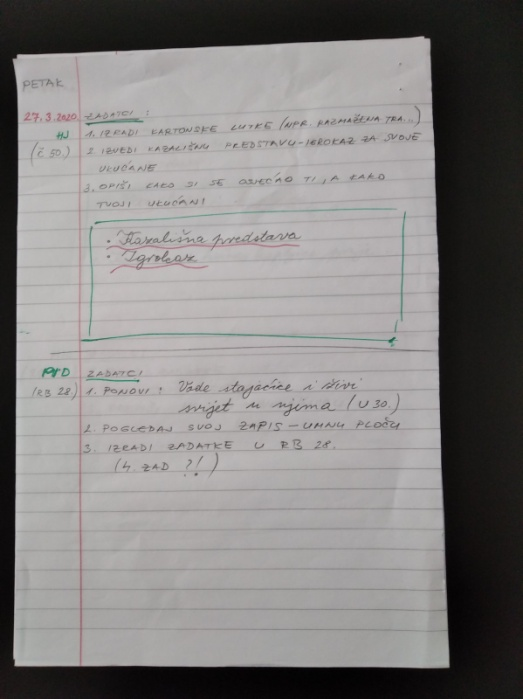 PETAK
27.3.2020. ZADATCI :
HJ 1. IZRADI KARTONSKE LUTKE (NPR. RAZMAŽENA TRA...)
(č. 50.) 2. IZVEDI KAZALIŠNU PREDSTAVU-IGROKAZ ZA SVOJE
UKUĆANE
3. OPIŠI KAKO SI SE OSJEĆAO TI, A KAKO
TVOJI UKUĆANI
• Kazališna predstava
• Igrokaz
PID ZADATCI
(RB 28.) 1. PONOVI : Vode stajaćice i živi
svijet u njima (U 30.)
2. POGLEDAJ SVOJ ZAPIS - UMNU PLOČU
3. IZRADI ZADATKE U RB 28.
(4. ZAD ?!)